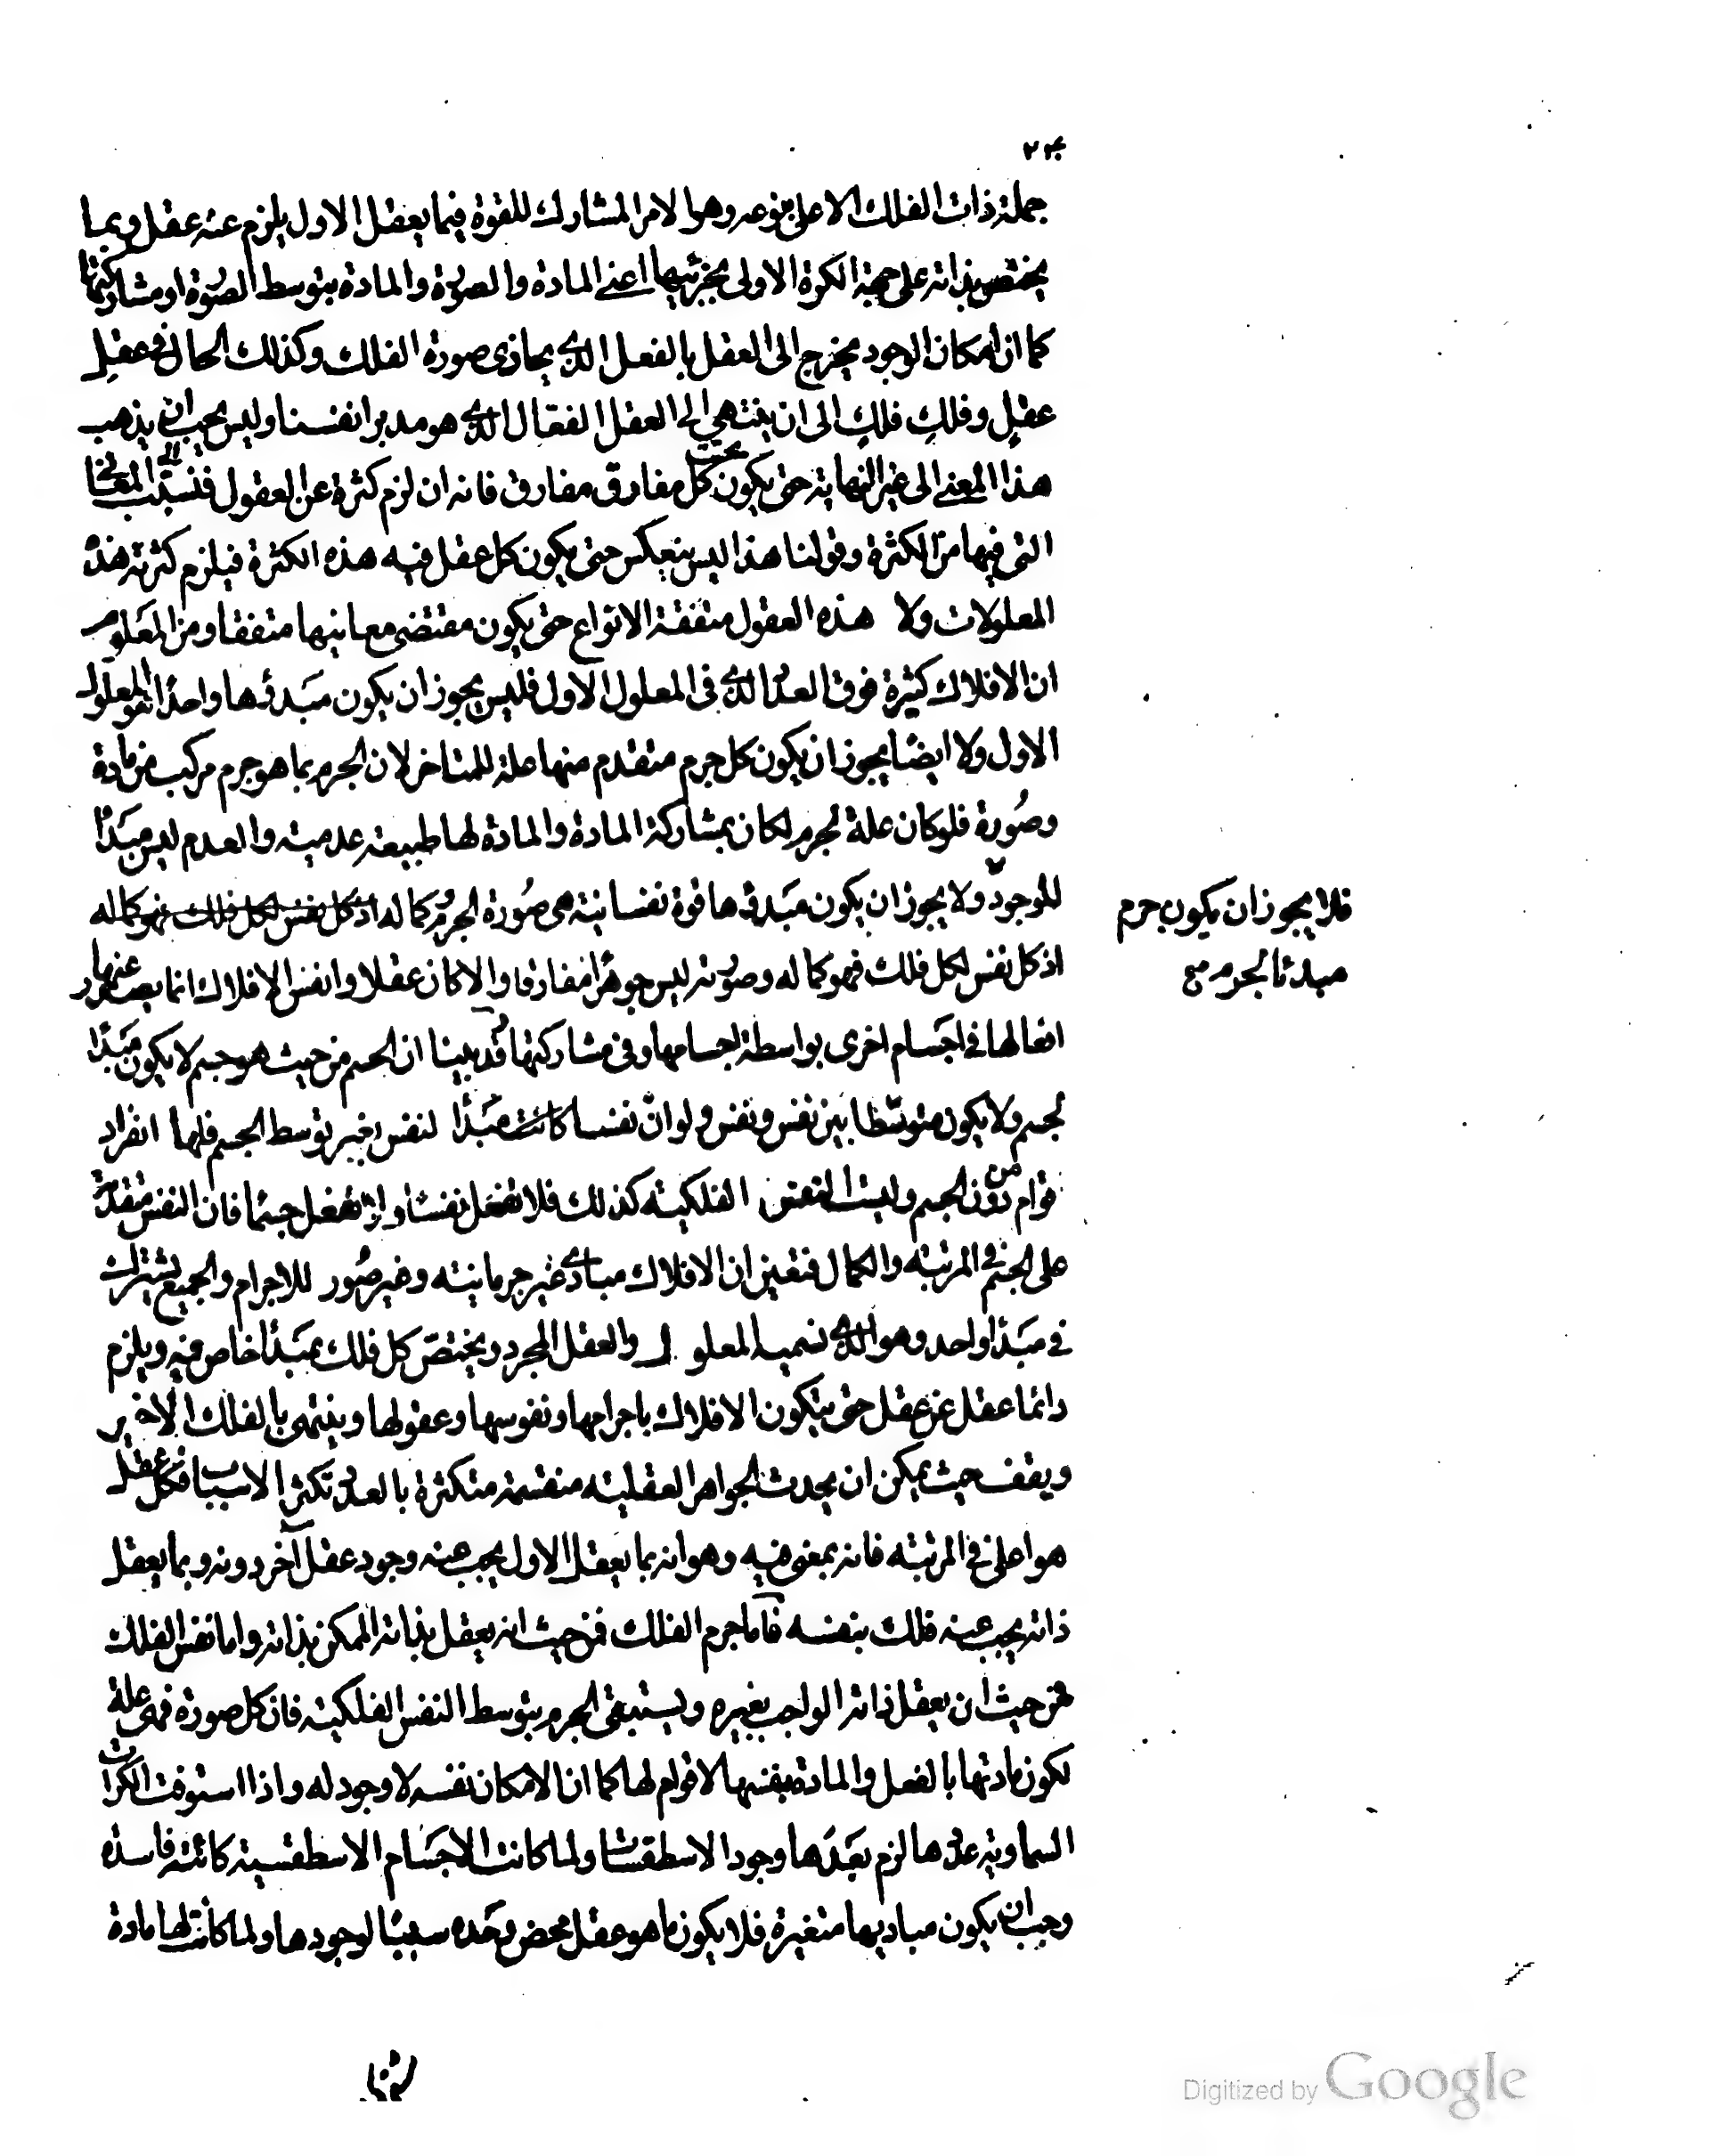 ٢٣٠
جملة ذات الفلك الاعلى بنوعه وهو الامر المشارك للقوة فبما يعقل الاول يلزم عنه عقل وبما
يختص بذاته على جهة الكرة الاولى بجزئيها اعنى المادة والصورة والمادة بتوسط الصورة او مشاركتها
كما ان امكان الوجود يخرج الى العقل بالفعل الذى يحاذى صورة الفلك وكذلك الحال فى عقل
عقل وفلك فلك الى ان ينتهى الى العقل الفعال الذى هو مدبر انفسنا وليس يجب ان يذهب
هذا المعنى الى غير النهاية حتى يكون تحت كل مفارق مفارق فانه ان لزم كثرة عن العقول فنسبت الى المعانى
التى فيها من الكثرة وقولنا هذا ليس ينعكس حتى يكون كل عقل فيه هذه الكثرة فيلزم كثرته هذه
المعلولات ولا هذه العقول متفقة الانواع حتى يكون مقتضى معانيها متفقا ومن المعلوم
ان الافلاك كثيرة فوق العدد الذى فى المعلول الاول فليس يجوز ان يكون مبدئها واحدا هو المعلول
الاول ولا ايضا يجوز ان يكون كل جرم متقدم منها علة للمتاخر لان الجرم بما هو جرم مركب من مادة
وصورة فلو كان علة لجرم لكان بمشاركة المادة والمادة لها طبيعة عدمية والعدم ليس مبدأ
للوجود ولا يجوز ان يكون مبدؤها قوة نفسانية هى صورة الجرم وكماله اذ كل نفس لكل فلك فهو كماله
فلا يجوز ان يكون جرم
مبدئا لجرم صح
اذ كل نفس لكل فلك فهو كماله وصورته ليس جوهرا مفارقا والا كان عقلا وانفس الافلاك انما يصدر عنها
افعالها فى اجسام اخرى بواسطة اجسامها وفى مشاركتها وقد بينا ان الجسم من حيث هو جسم لا يكون مبدأ
لجسم ولا يكون متوسطا بين نفس ونفس ولو ان نفسا كانت مبدأ لنفس بغير توسط الجسم فلها انفراد
قوام من دون الجسم وليست النفس الفلكية كذلك فلا تفعل نفسا ولا تفعل جسما فان النفس متقدمة
على الجسم فى المرتبة والكمال فتعين ان الافلاك مبادى غير جرمانية وغير صور للاجرام والجميع يشترك
فى مبدأ واحد وهو الذى نسميه المعلول والعقل المجرد ويختص كل فلك بمبدأ خاص فيه ويلزم
دائما عقل عن عقل حتى يتكون الافلاك باجرامها ونفوسها وعقولها وينتهى بالفلك الاخير
ويقف حيث يمكن ان يحدث الجواهر العقلية منقسمة متكثرة بالعدد تكثر الاسباب فكل عقل
هو اعلى فى المرتبة فانه بمعنى فيه وهو انه بما يعقل الاول يجب عنه وجود عقل آخر دونه وبما يعقل
ذاته يجب عنه فلك بنفسه فاما جرم الفلك فمن حيث انه يعقل بذاته الممكن بذاته واما نفس الفلك
فمن حيث ان يعقل ذاته الواجب بغيره ويستبقى الجرم بتوسط النفس الفلكية فان كل صورة فهى علة
لكون مادتها بالفعل والمادة بنفسها لا قوام لها كما ان الامكان نفسه لا وجود له واذا استوفت الكرات
السماوية عددها لزم بعدها وجود الاسطقسات ولما كانت الاجسام الاسطقسية كائنة فاسدة
وجب ان يكون مباديها متغيرة فلا يكون ما هو عقل محض وحده سببا لوجودها ولما كانت لها مادة
Digitized by Google